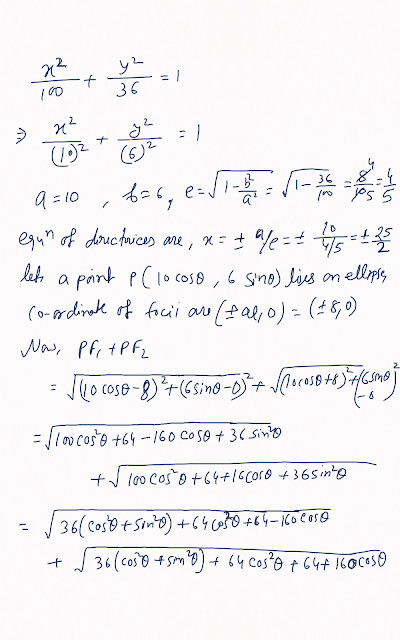 x²/100 + y²/36 = 1
⇒ x²/(10)² + y²/(6)² = 1
a=10 , b=6, e=√(1-b²/a²) = √(1-36/100) = 8/10 = 4/5
equⁿ of directrices are, x = ± a/e = ± 10/4/5 = ± 25/2
lets a point P(10cosθ, 6 sinθ) lies on ellipse,
co-ordinate of focii are (±ae,0) = (±8,0)
Now, PF₁ + PF₂
= √((10cosθ-8)²+(6sinθ-0)²) + √((10cosθ+8)²+(6sinθ-0)²)
= √(100cos²θ+64-160cosθ+36sin²θ)
+ √(100cos²θ+64+16cosθ+36sin²θ)
= √(36(cos²θ+sin²θ)+64cos²θ+64-160cosθ)
+ √(36(cos²θ+sin²θ)+64cos²θ+64+160cosθ)